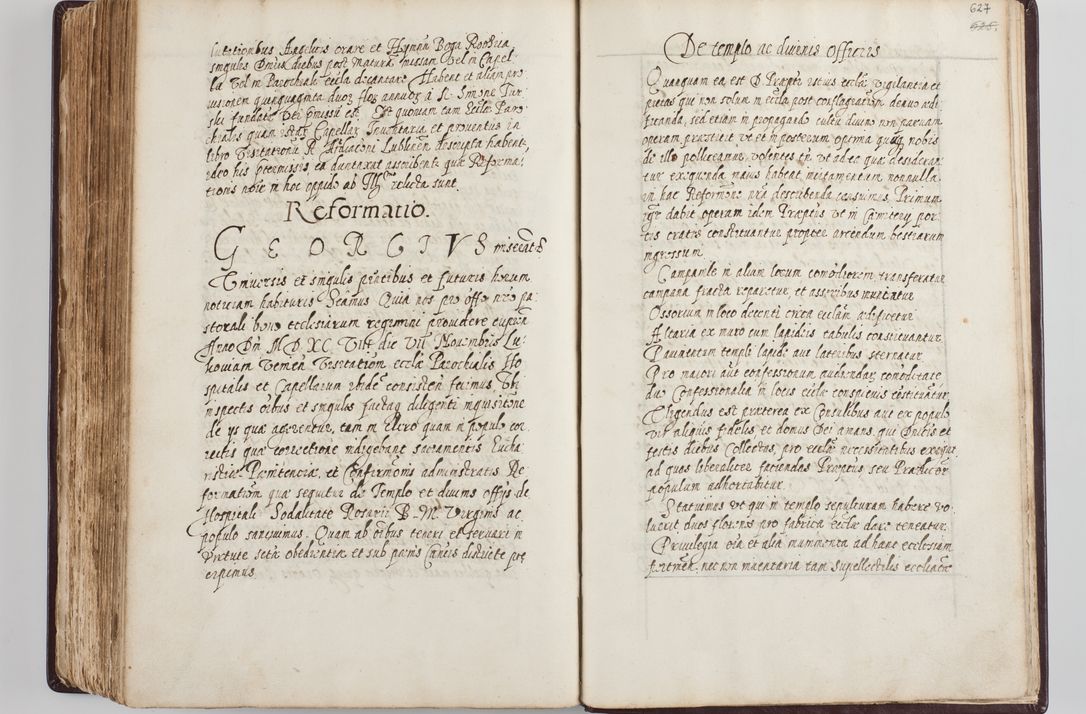 lutationibus Angelicis orare et Hymnū Boga Rodzica
singulis Dnicis diebus post maturā missam vel in Capel
la vel in Parochiali Eccla decantare. Habent et aliam pro
uisionem quinquaginta duos flor annuos à St. Simone Tur
ski fundato uti pmissū est. Et quoniam tam Ecclæ Paro
chialis quam istaꝝ Capellaꝝ Inuentaria et prouentus in
libro Visitationū R. Archiaconi Lublinēn descripta habent
ideo his ptermissis ea duntaxat ascribentꝰ quæ Reforma
tionis noīe in hoc oppido ab Illmo relicta sunt
Reformatio.
GEORGIVS miseratōe
Vniuersis et singulis pntibus et futuris horum
notitiam habituris Seamus Quia nos pro offo nro pa
storali bono ecclesiarum regimini prouidere cupien
Anno Dni MDXC VIII die VII Nouembris Lu
kouiam venien Visitatiom ecclæ Parochialis Ho
spitales et Capellarum ibidē consisten fecimus Vbi
inspectis oībus et singulis factaq diligenti inquisitione
de ys quæ agerentur, tam in Clero quam in populo cor
rectis quæ correctione indigebant sacramentis Eucha
ristiæ Pœnitenciæ, et Confirmōnis administratis Re
formatiom quæ sequitur de Templo et diuinis offys de
Hospitali Sodalitate Rosarii B. M. Virginis ac
populo sanciuimus. Quam ab oībus teneri et seruari in
virtute sctæ obedientiæ et sub pœnis Cnicis districte præ
cipimus
627
De templo ac diuinis officiis
Quanquam ea est D. Præpti istius ecclæ vigilantia et
pietas qui non solum in eccla post conflagratiom denuo ædi
ficanda, sed etiam in propagando cultu diuino non paruam
operam præstitit ut et in posterum optima quæq nobis
de illo polliceamur, volentes tn ut ad ea quæ desideran
tur exequenda maius habeat incitamentum nonnulla
in hac Reformōne nra describenda censuimus, Primum
igr dabit operam idem Præptus ut in Cæmitery por
tis crates constituantur propter arcendum bestiarum
ingressum
Campanile in alium locum comodiorem transferatur
campana fracta reparetur, et asseribus muniatur
Ossorium in loco decenti circa ecclam ædificetur
Altaria ex muro cum lapideis tabulis constituantur
Pauimentum templi lapide aut lateribus sternatur
Pro maiori aut confessionum audiendaꝝ comoditate
duo Confessionalia in locis ecclæ conspicuis extruātur
Eligendus est præterea ex Consulibus aut ex populo
vir aliquis fidelis et domus Dei amans, qui Dnicis et
festis diebus Collectas, pro ecclæ necessitatibus exequr
ad quas liberaliter faciendas Præptus seu Prædicator
populum adhortabitur
Statuimus ut qui in templo sepulturam habere vo
luerit duos florenos pro fabrica ecclæ dare teneatur
Priuilegia oīa et alia munimenta ad hanc ecclesiam
ptinen, nec non inuentaria tam supellectilis ecclicæ